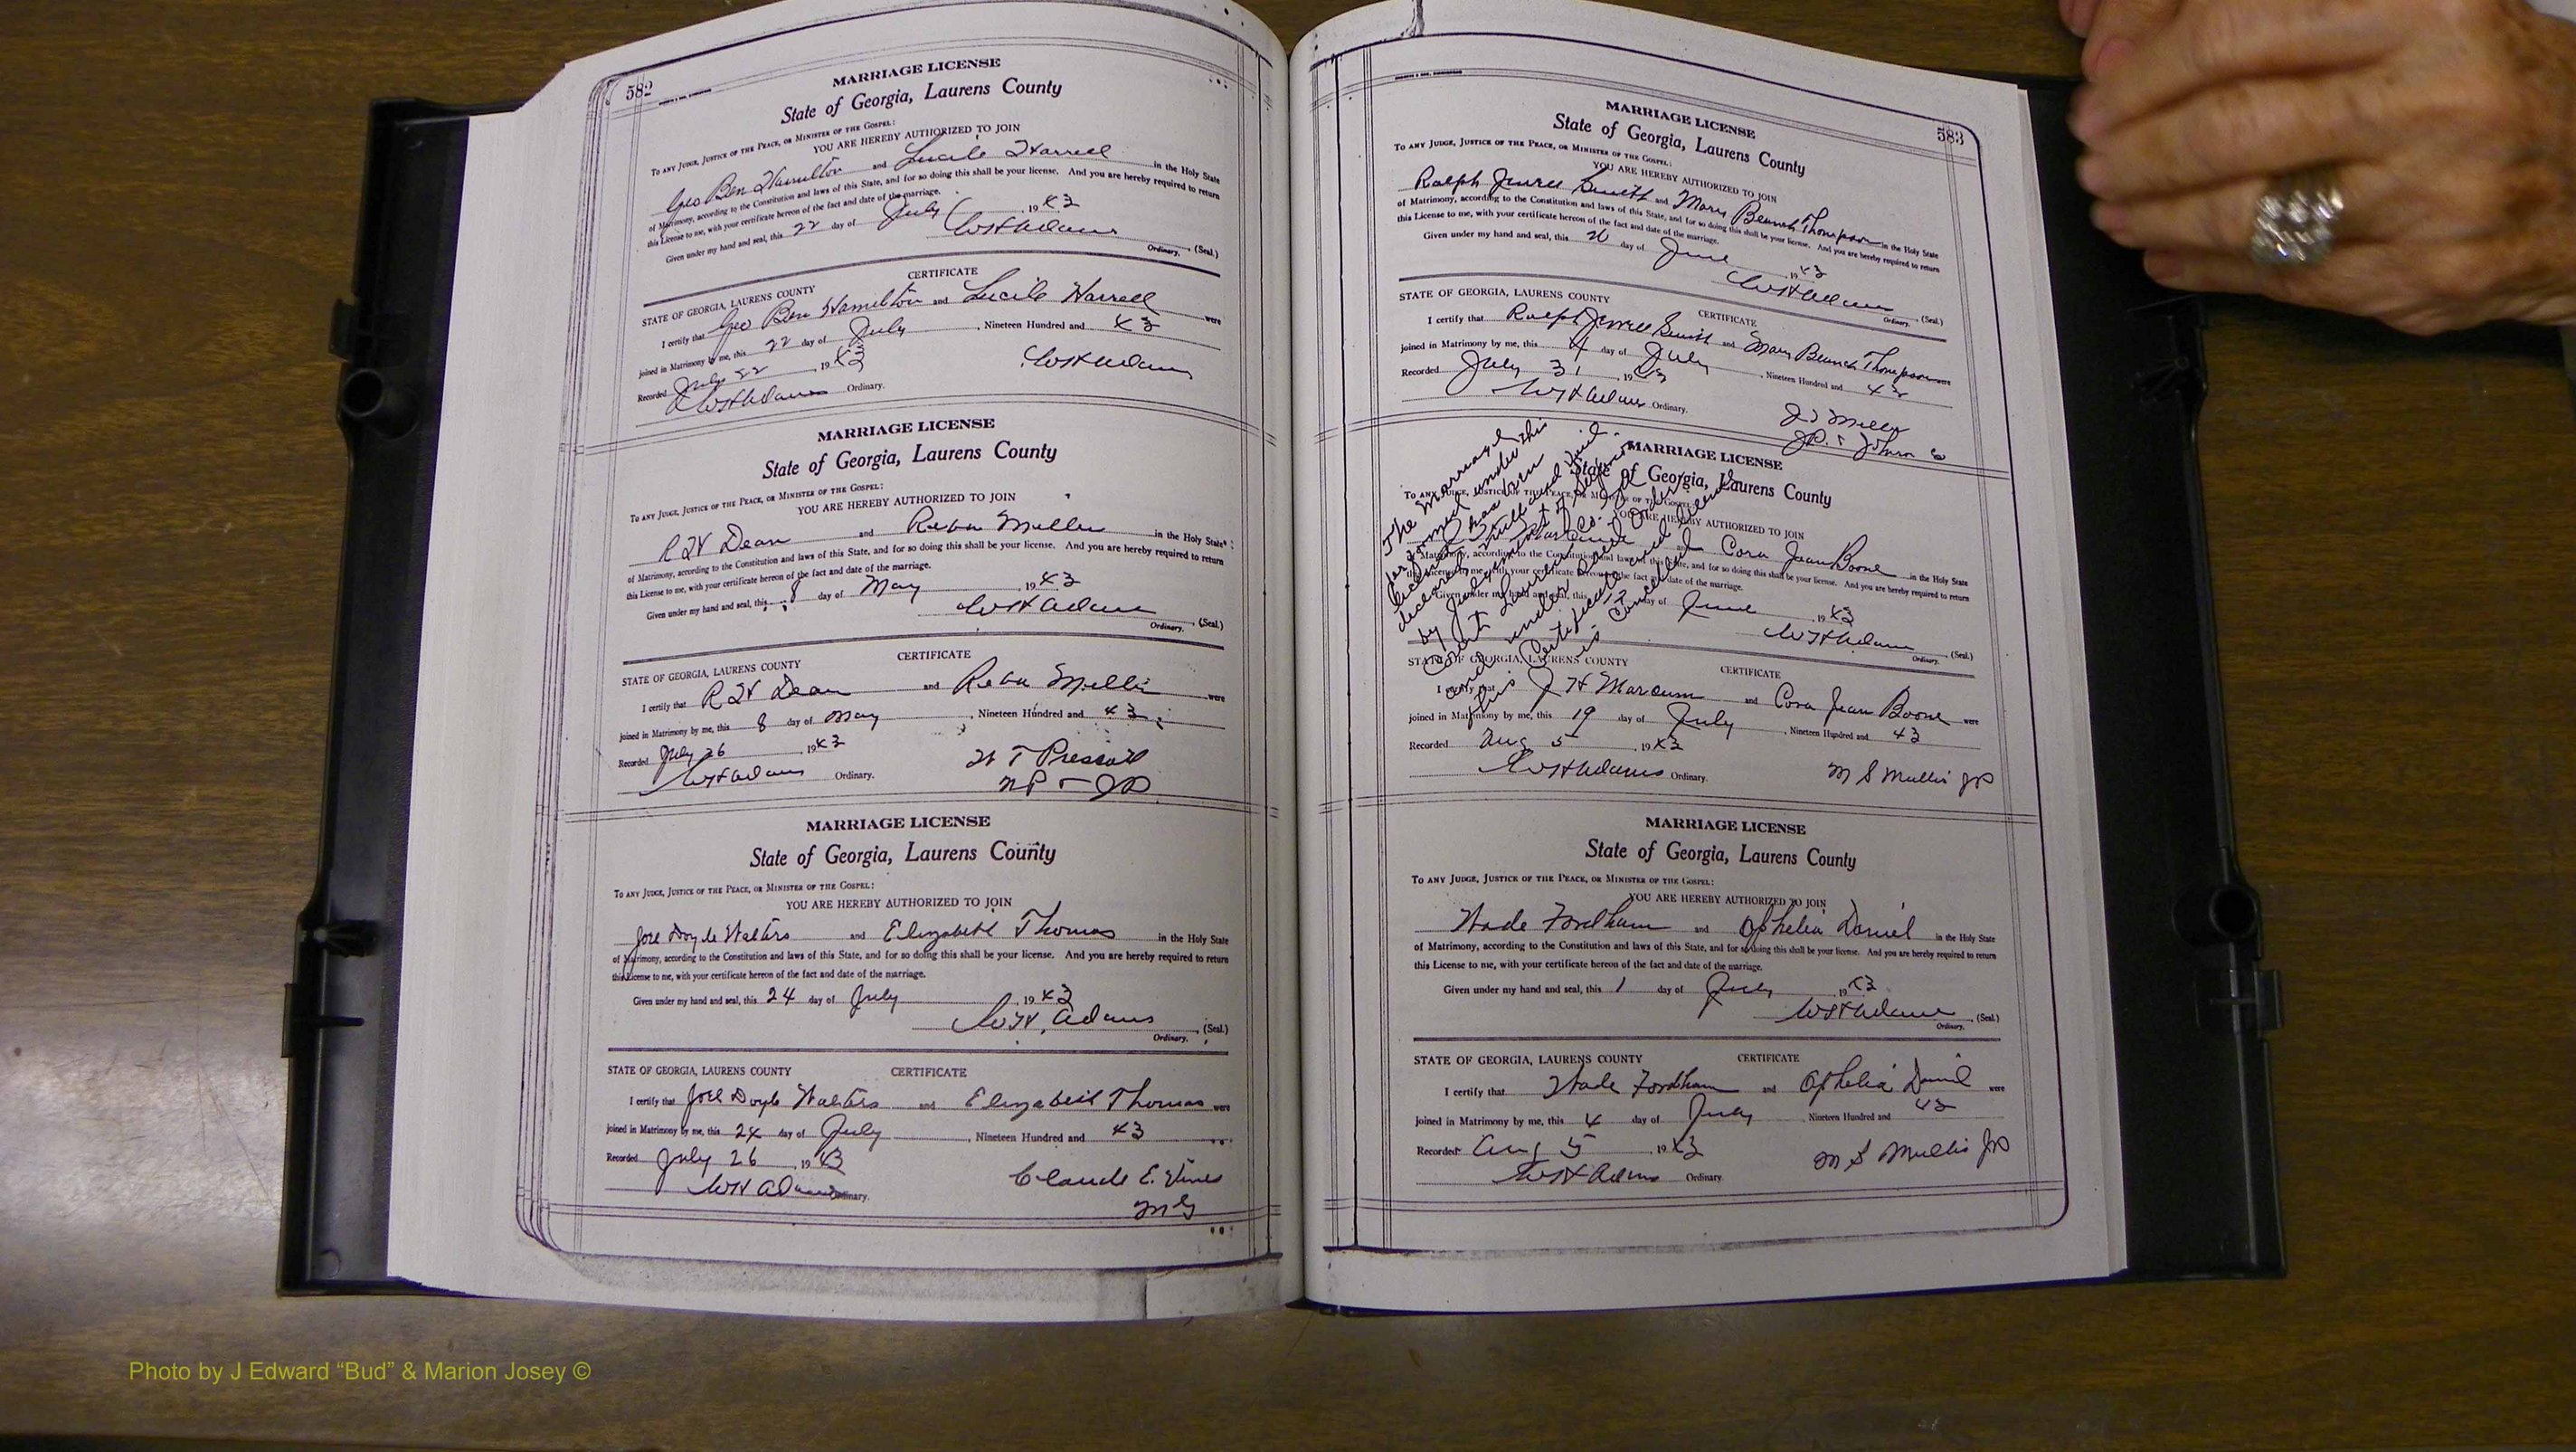 582
MARRIAGE LICENSE
State of Georgia, Laurens County
To any Judge, Justice of the Peace, or Minister of the Gospel:
YOU ARE HEREBY AUTHORIZED TO JOIN
Geo Ben Hamilton and Lucile Harrell in the Holy State
of Matrimony, according to the Constitution and laws of this State, and for so doing this shall be your license. And you are hereby required to return
this License to me, with your certificate hereon of the fact and date of the marriage.
Given under my hand and seal, this 22 day of July 1943
W H Adams Ordinary. (Seal.)
CERTIFICATE
STATE OF GEORGIA, LAURENS COUNTY
I certify that Geo Ben Hamilton and Lucile Harrell were
joined in Matrimony by me, this 22 day of July, Nineteen Hundred and 43
Recorded July 22, 1943
W H Adams Ordinary. W H Adams
MARRIAGE LICENSE
State of Georgia, Laurens County
To any Judge, Justice of the Peace, or Minister of the Gospel:
YOU ARE HEREBY AUTHORIZED TO JOIN
R H Dean and Reba Miller in the Holy State
of Matrimony, according to the Constitution and laws of this State, and for so doing this shall be your license. And you are hereby required to return
this License to me, with your certificate hereon of the fact and date of the marriage.
Given under my hand and seal, this 8 day of May 1943
W H Adams Ordinary. (Seal.)
CERTIFICATE
STATE OF GEORGIA, LAURENS COUNTY
I certify that R H Dean and Reba Miller were
joined in Matrimony by me, this 8 day of May, Nineteen Hundred and 43
Recorded July 26, 1943
W H Adams Ordinary.
NP & JP
MARRIAGE LICENSE
State of Georgia, Laurens County
To any Judge, Justice of the Peace, or Minister of the Gospel:
YOU ARE HEREBY AUTHORIZED TO JOIN
Joel Doyle Walters and Elizabeth Thomas in the Holy State
of Matrimony, according to the Constitution and laws of this State, and for so doing this shall be your license. And you are hereby required to return
this License to me, with your certificate hereon of the fact and date of the marriage.
Given under my hand and seal, this 24 day of July, 1943
W H. Adams, (Seal.)
Ordinary.
STATE OF GEORGIA, LAURENS COUNTY CERTIFICATE
I certify that Joel Doyle Walters and Elizabeth Thomas were
joined in Matrimony by me, this 24 day of July, Nineteen Hundred and 43
Recorded July 26, 1943
W H Adams Ordinary. Claude E. Vines
MG
583
MARRIAGE LICENSE
State of Georgia, Laurens County
To any Judge, Justice of the Peace, or Minister of the Gospel:
YOU ARE HEREBY AUTHORIZED TO JOIN
Ralph Smith and Mary Thompson in the Holy State
of Matrimony, according to the Constitution and laws of this State, and for so doing this shall be your license. And you are hereby required to return
this License to me, with your certificate hereon of the fact and date of the marriage.
Given under my hand and seal, this 26 day of June 1943
W H Adams Ordinary. (Seal.)
CERTIFICATE
STATE OF GEORGIA, LAURENS COUNTY
I certify that Ralph Smith and Mary Thompson were
joined in Matrimony by me, this 4 day of July, Nineteen Hundred and 43
Recorded July 31, 1943
W H Adams Ordinary.
MARRIAGE LICENSE
State of Georgia, Laurens County
The Marriage
performed under this
license has been
declared null and void
by Judgment of
Court Laurens Co.
and under
Certificate and license
this is Cancelled
To any Judge, Justice of the Peace, or Minister of the Gospel:
YOU ARE HEREBY AUTHORIZED TO JOIN
and Cora Jean Boone in the Holy State
of Matrimony, according to the Constitution and laws of this State, and for so doing this shall be your license. And you are hereby required to return
this License to me, with your certificate hereon of the fact and date of the marriage.
Given under my hand and seal, this 12 day of June, 1943
W H Adams Ordinary. (Seal.)
CERTIFICATE
STATE OF GEORGIA, LAURENS COUNTY
I certify that J H Marcum and Cora Jean Boone were
joined in Matrimony by me, this 19 day of July, Nineteen Hundred and 43
Recorded Aug 5, 1943
W H Adams Ordinary. M S Mullis JP
MARRIAGE LICENSE
State of Georgia, Laurens County
To any Judge, Justice of the Peace, or Minister of the Gospel:
YOU ARE HEREBY AUTHORIZED TO JOIN
Wade Fordham and Ophelia Daniel in the Holy State
of Matrimony, according to the Constitution and laws of this State, and for so doing this shall be your license. And you are hereby required to return
this License to me, with your certificate hereon of the fact and date of the marriage.
Given under my hand and seal, this 1 day of July, 1943
W H Adams Ordinary. (Seal.)
STATE OF GEORGIA, LAURENS COUNTY CERTIFICATE
I certify that Wade Fordham and Ophelia Daniel were
joined in Matrimony by me, this 4 day of July Nineteen Hundred and 43
Recorded Aug 5 1943
W H Adams Ordinary. M S Mullis JP
Photo by J Edward “Bud” & Marion Josey ©